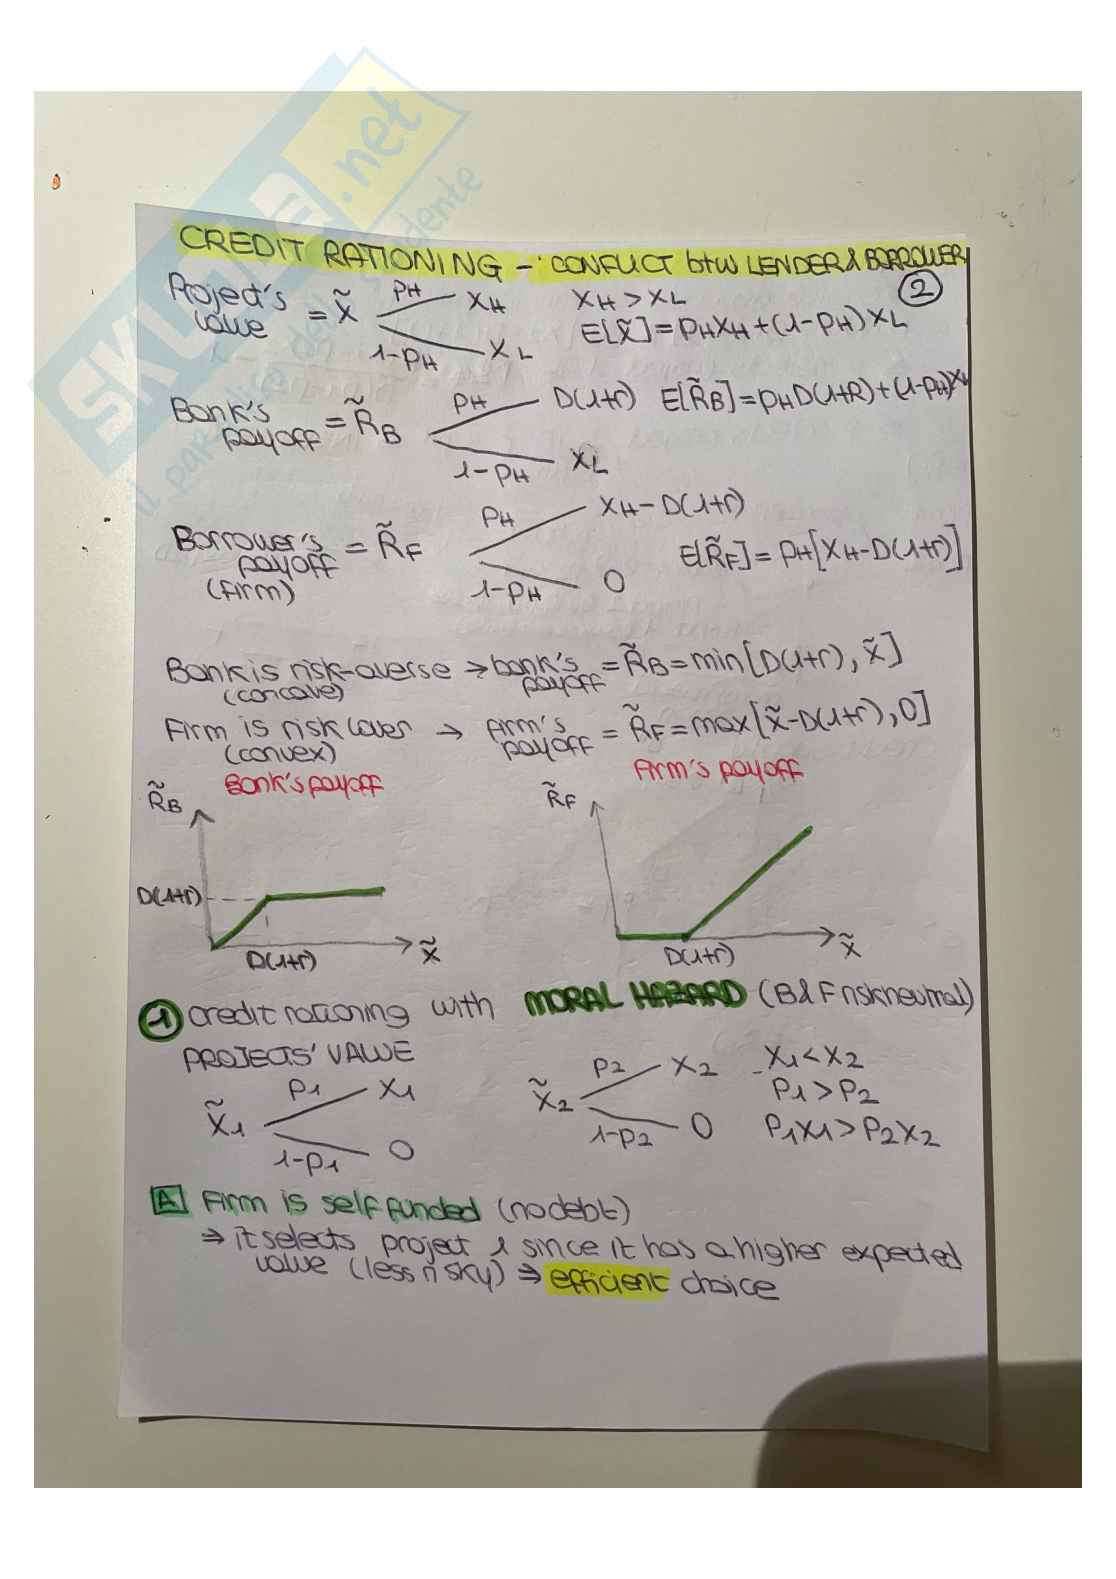 SKUOLA.net
il paradiso dello studente
CREDIT RATIONING - CONFLICT btw LENDER & BORROWER
2
Project's value = X̃
pH XH
1-pH XL
XH > XL
E[X̃] = pHXH + (1-pH)XL
Bank's payoff = R̃B
pH D(1+r)
1-pH XL
E[R̃B] = pHD(1+R) + (1-pH)XL
Borrower's payoff (firm) = R̃F
pH XH - D(1+r)
1-pH 0
E[R̃F] = pH[XH - D(1+r)]
Bank is risk-averse → bank's payoff = R̃B = min[D(1+r), x̃]
(concave)
Firm is risk lover → firm's payoff = R̃F = max[x̃ - D(1+r), 0]
(convex)
Bank's payoff
R̃B
D(1+r)
D(1+r) x̃
Firm's payoff
R̃F
D(1+r) x̃
1 credit rationing with MORAL HAZARD (B & F risk neutral)
PROJECTS' VALUE
X̃1
p1 X1
1-p1 0
X̃2
p2 X2
1-p2 0
X1 < X2
P1 > P2
P1X1 > P2X2
A Firm is self funded (no debt)
⇒ it selects project 1 since it has a higher expected
value (less risky) ⇒ efficient choice